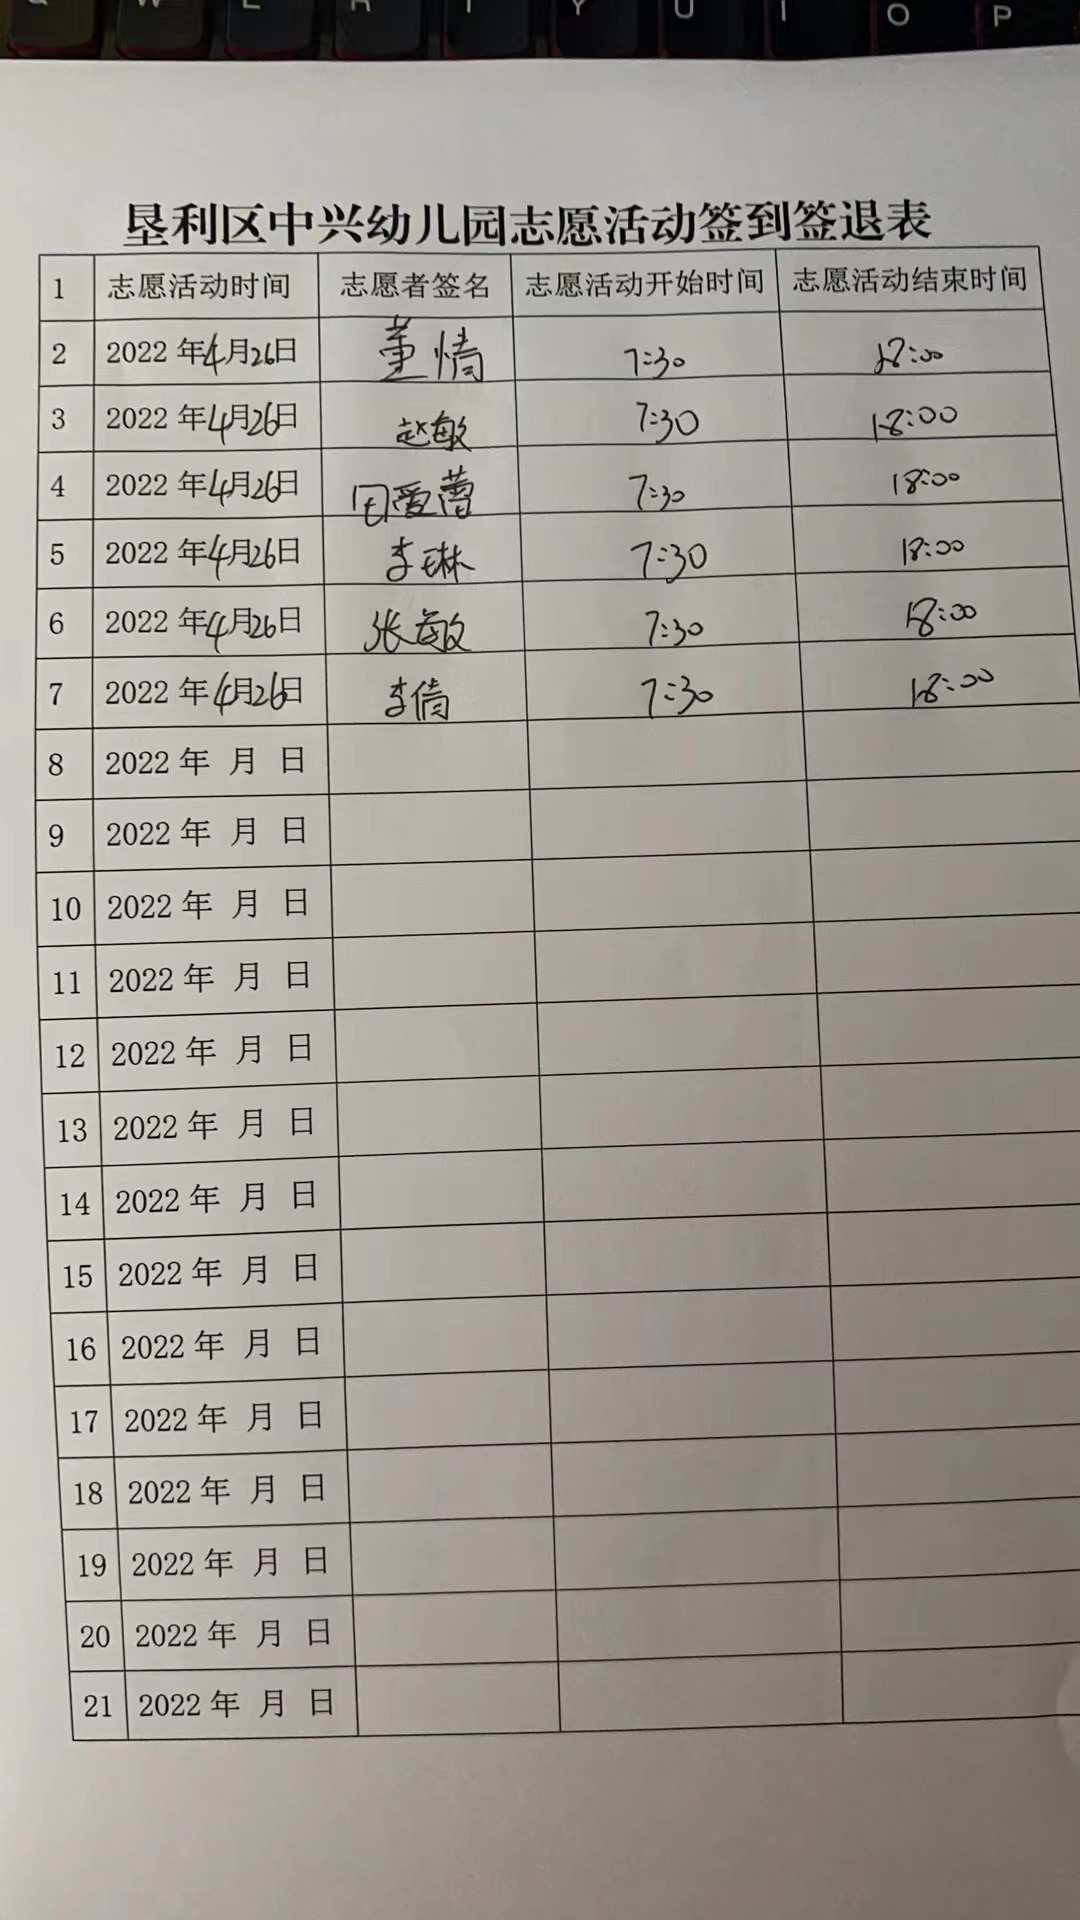 Q W E R T Y U I O P
垦利区中兴幼儿园志愿活动签到签退表
1 志愿活动时间 志愿者签名 志愿活动开始时间 志愿活动结束时间
2 2022 年4月26日 董情 7:30 18:00
3 2022 年4月26日 赵敏 7:30 18:00
4 2022 年4月26日 田爱蕾 7:30 18:00
5 2022 年4月26日 李琳 7:30 18:00
6 2022 年4月26日 张敏 7:30 18:00
7 2022 年4月26日 李倩 7:30 18:00
8 2022 年 月 日
9 2022 年 月 日
10 2022 年 月 日
11 2022 年 月 日
12 2022 年 月 日
13 2022 年 月 日
14 2022 年 月 日
15 2022 年 月 日
16 2022 年 月 日
17 2022 年 月 日
18 2022 年 月 日
19 2022 年 月 日
20 2022 年 月 日
21 2022 年 月 日